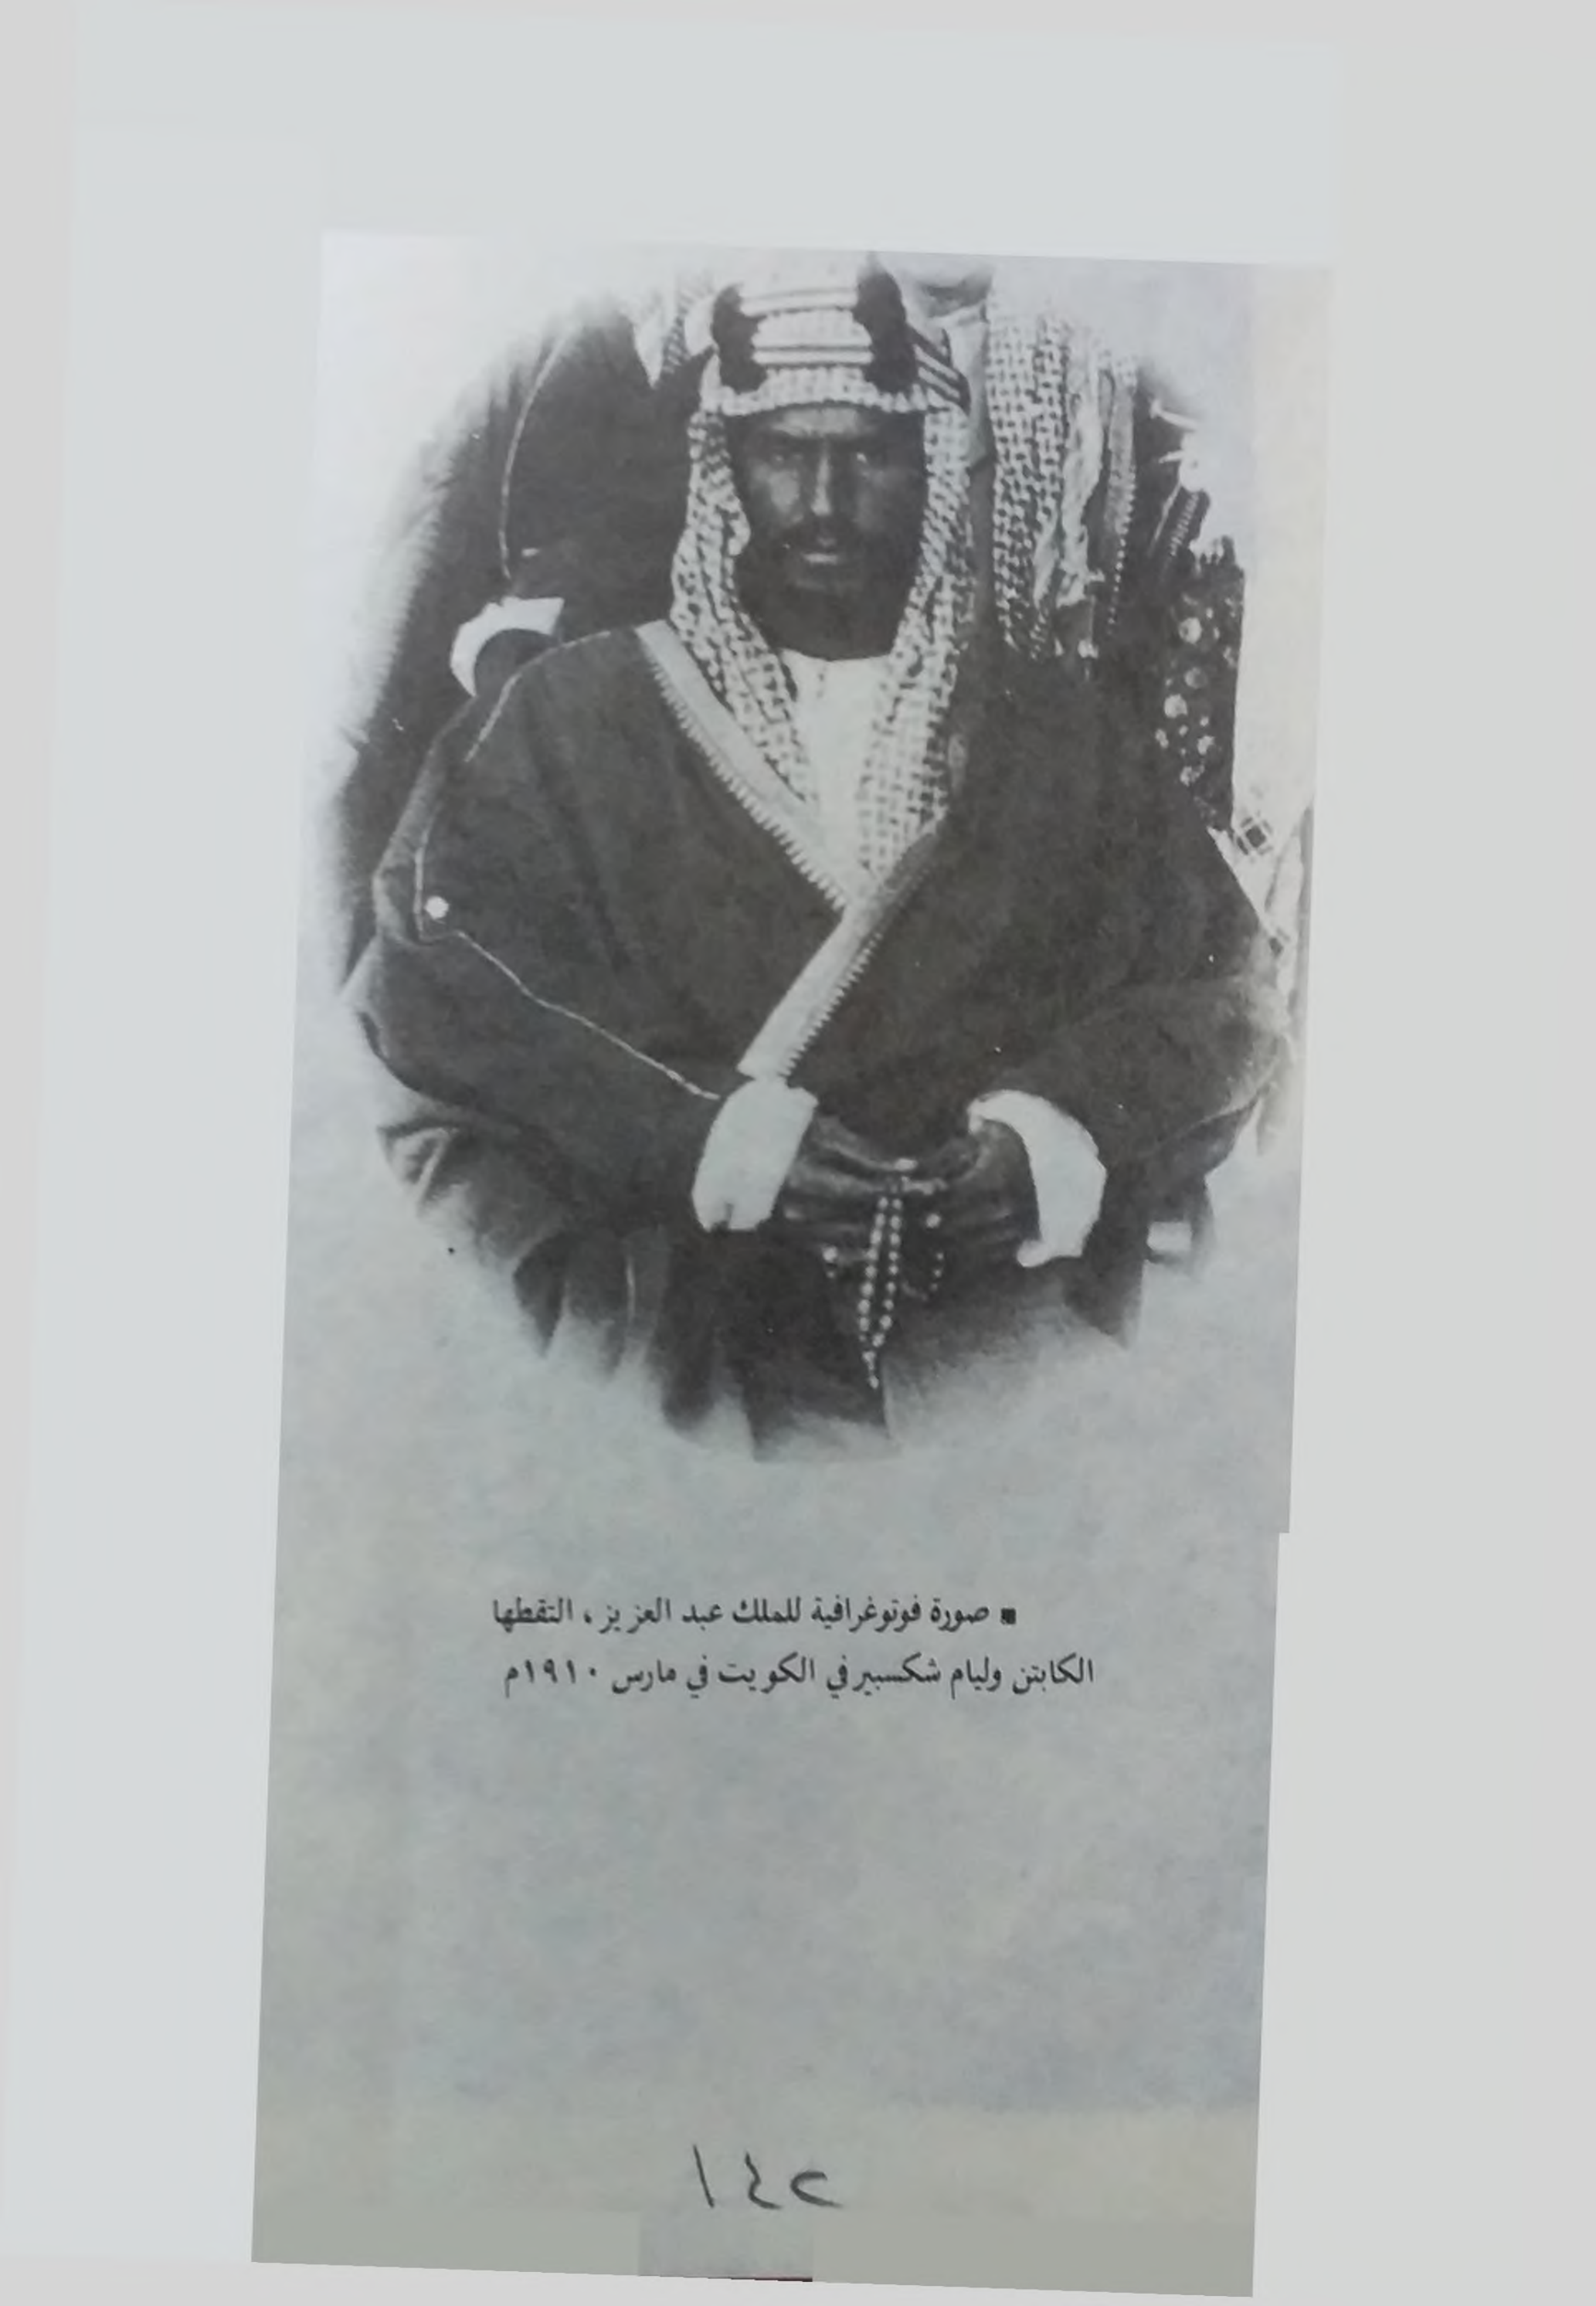 ▪ صورة فوتوغرافية للملك عبد العزيز، التقطها
الكابتن وليام شكسبير في الكويت في مارس ١٩١٠م